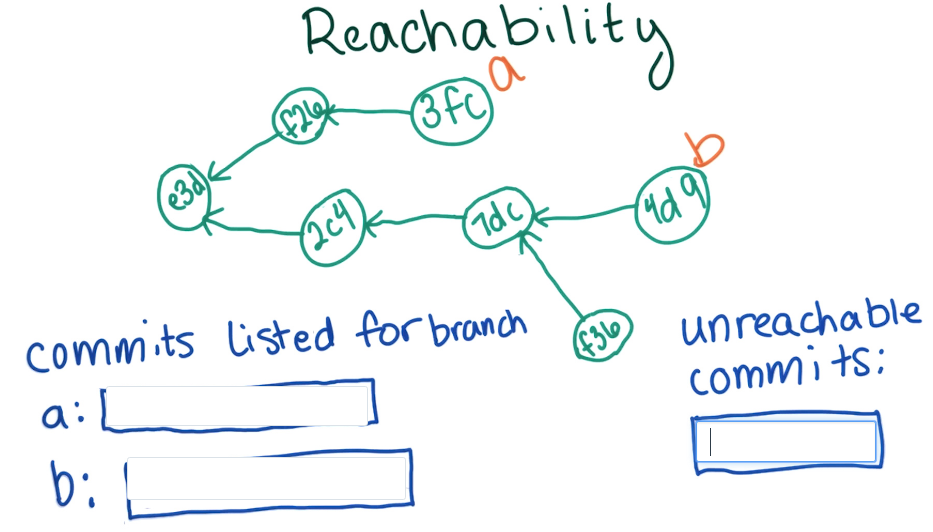 Reachability
a
f26
3fc
b
e3d
2c4
7dc
4d9
f36
commits listed for branch
a:
b:
unreachable
commits: